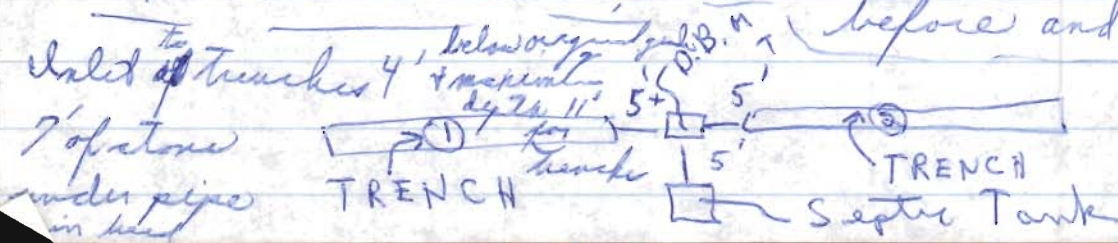 before and
Inlet to trenches 4' below original grade
& maximum
depth 11'
for
trenches
D.B.
5'+ 5'
7' of stone
under pipe
in bed
1 2
5'
TRENCH TRENCH
Septic Tank